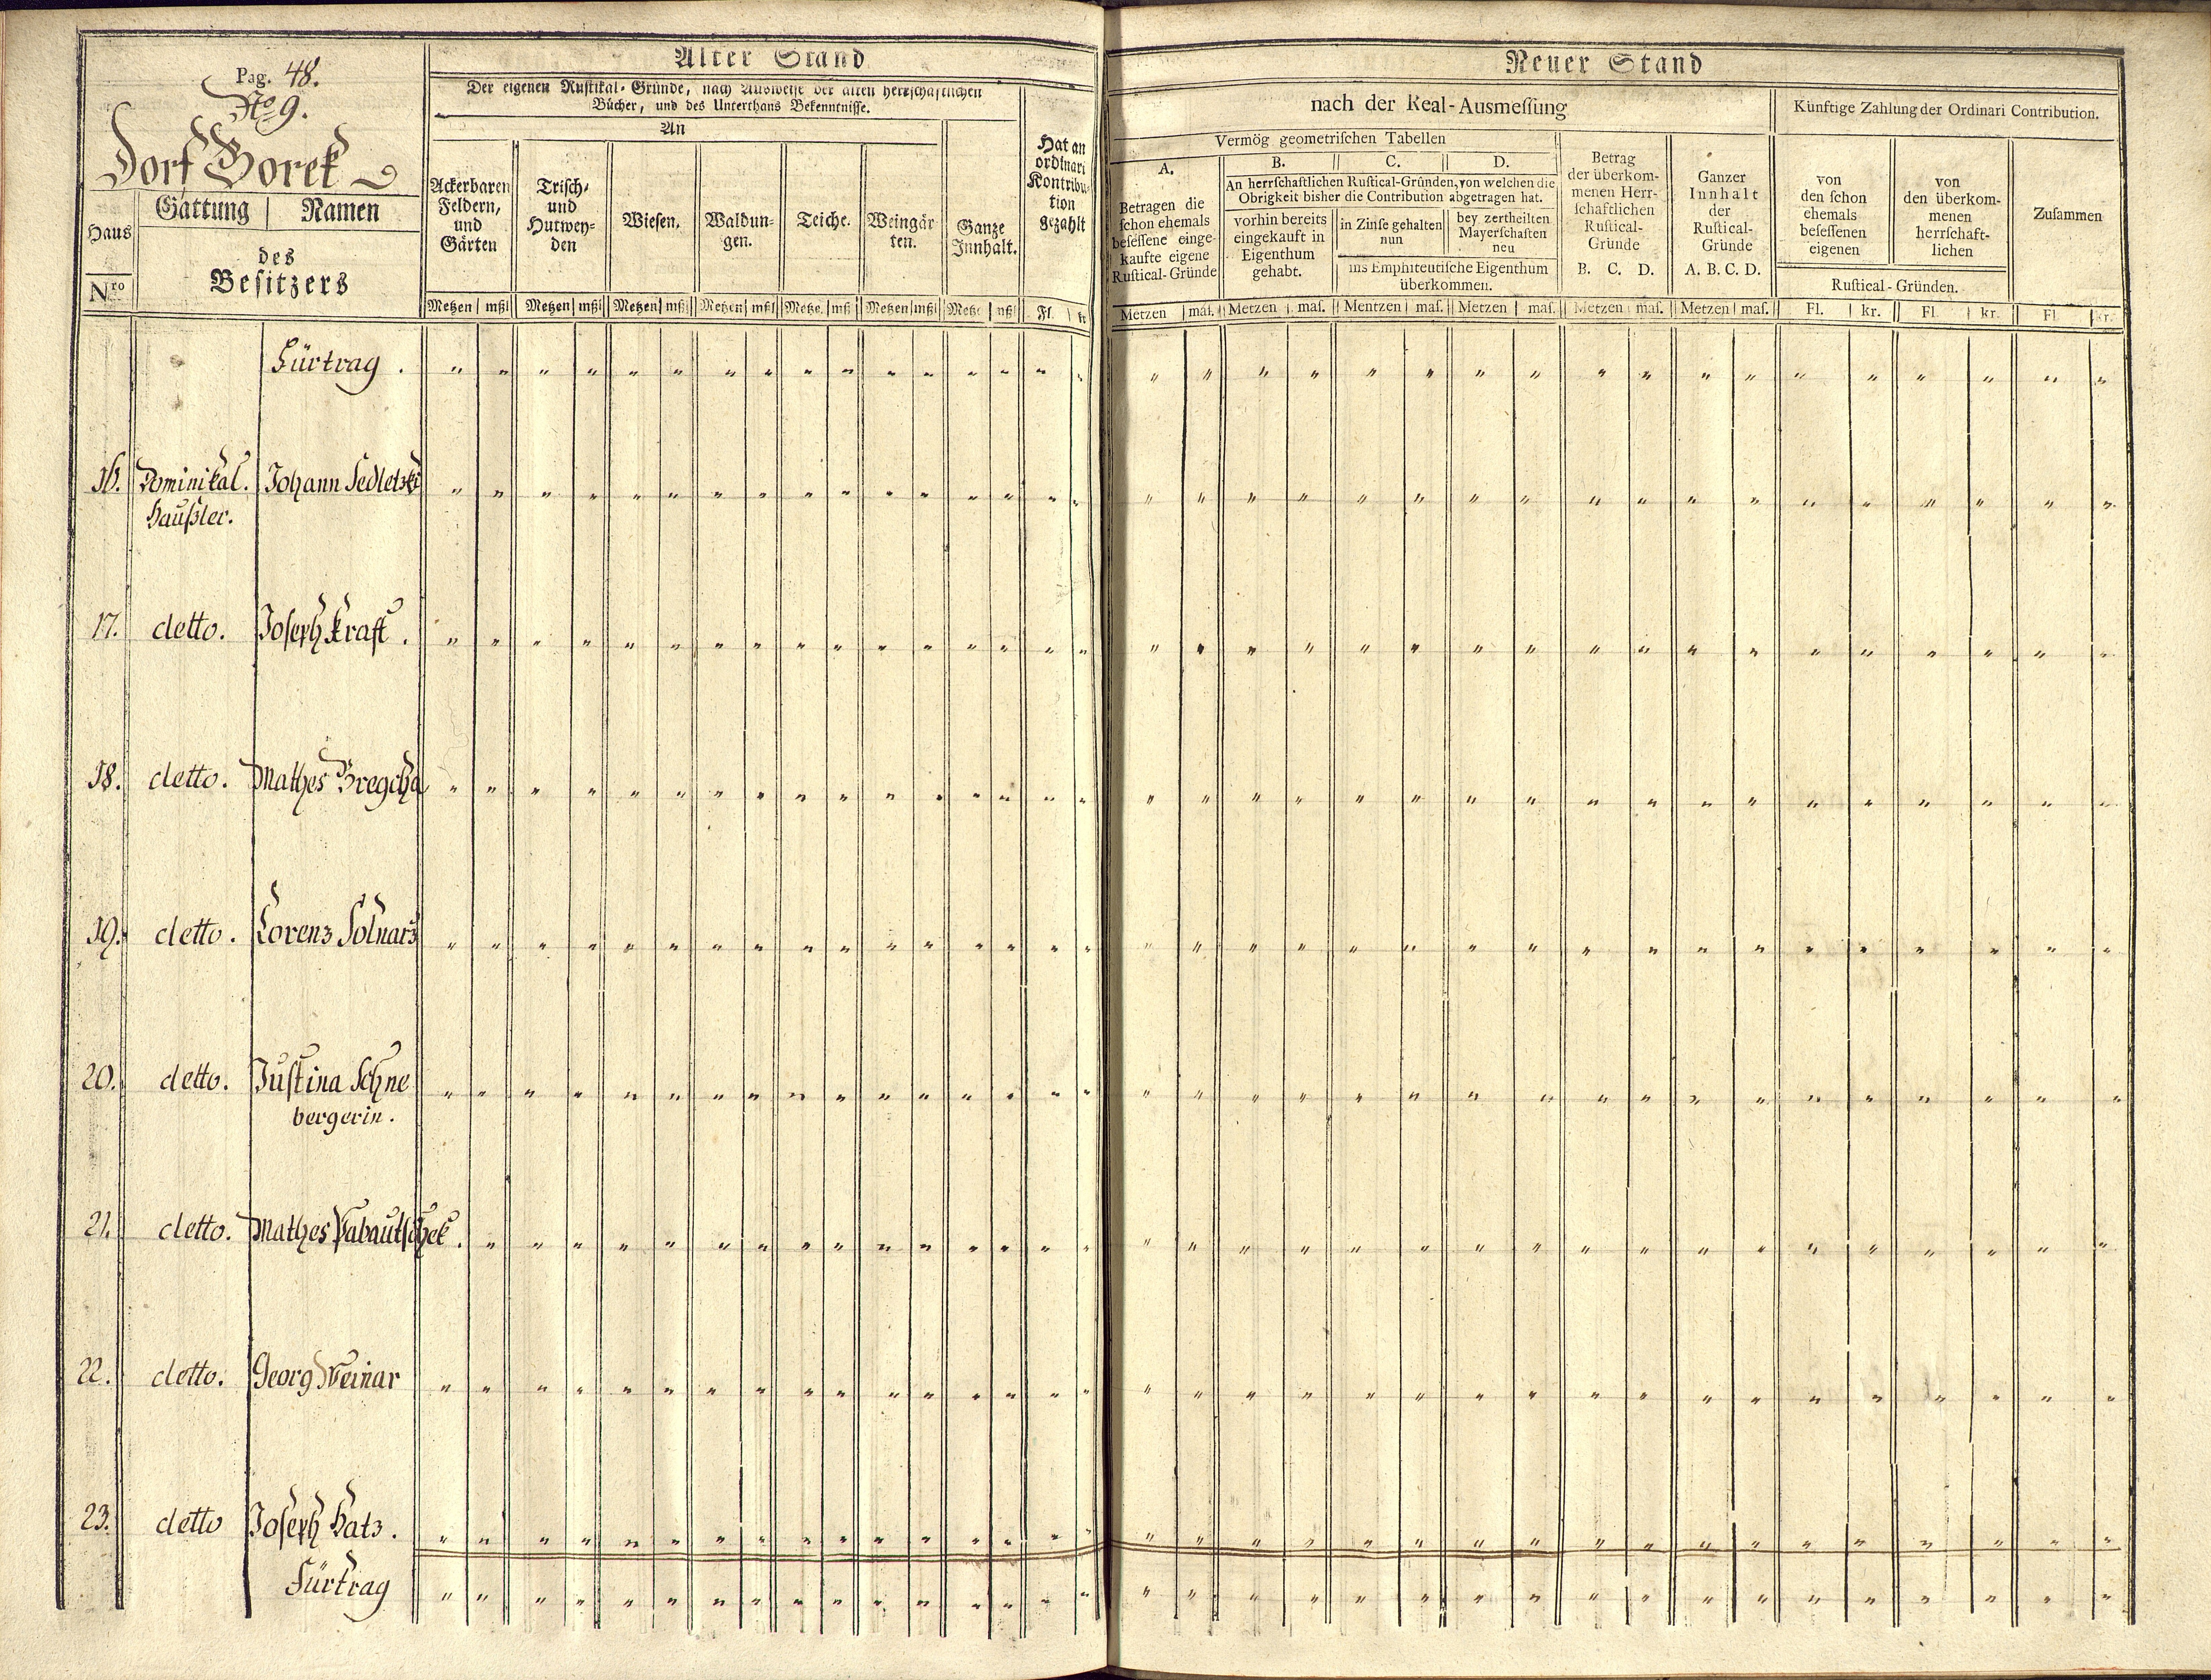 Pag. 48.
No 9.
Dorf Borek
Haus Nro
Gattung | Namen
des
Besitzers
Alter Stand
Der eigenen Rustikal-Gründe, nach Ausweise der alten herrschaftlichen
Bücher, und des Unterthans Bekenntnisse.
An
Ackerbaren
Feldern,
und
Gärten
Trisch-
und
Hutwey-
den
Wiesen.
Waldun-
gen.
Teiche.
Weingär
ten.
Ganze
Innhalt.
Hat an
ordinari
Kontribu-
tion
gezahlt
Metzen | mßl | Metzen | mßl | Metzen | mßl | Metzen | mßl | Metze. | mß | Metzen | mßl | Metze | mßl | Fl. | kr
Neuer Stand
nach der Real-Ausmeſſung
Vermög geometriſchen Tabellen
A.
Betragen die
ſchon ehemals
beſeſſene einge-
kaufte eigene
Ruſtical-Gründe
B. C. D.
An herrſchaftlichen Ruſtical-Gründen, von welchen die
Obrigkeit bisher die Contribution abgetragen hat.
vorhin bereits
eingekauft in
Eigenthum
gehabt.
in Zinſe gehalten
nun
bey zertheilten
Mayerſchaften
neu
ins Emphiteutiſche Eigenthum
überkommen.
Betrag
der überkom-
menen Herr-
ſchaftlichen
Ruſtical-
Gründe
B. C. D.
Ganzer
Innhalt
der
Ruſtical-
Gründe
A. B. C. D.
Künftige Zahlung der Ordinari Contribution.
von
den ſchon
ehemals
beſeſſenen
eigenen
von
den überkom-
menen
herrſchaft-
lichen
Ruſtical-Gründen.
Zuſammen
Metzen | maſ. | Metzen | maſ. | Mentzen | maſ. | Metzen | maſ. | Metzen | maſ. | Metzen | maſ. | Fl. | kr. | Fl. | kr. | Fl. | kr.
Fürtrag.
16. Dominikal. Johann Sedletzki
Haußler.
17. detto. Joseph Kraft.
18. detto. Mathes
19. detto. Lorenz Solnarz
20. detto. Justina Schne
bergerin.
21. detto. Mathes
22. detto. Georg Weinar
23. detto Joseph Hatz.
Fürtrag